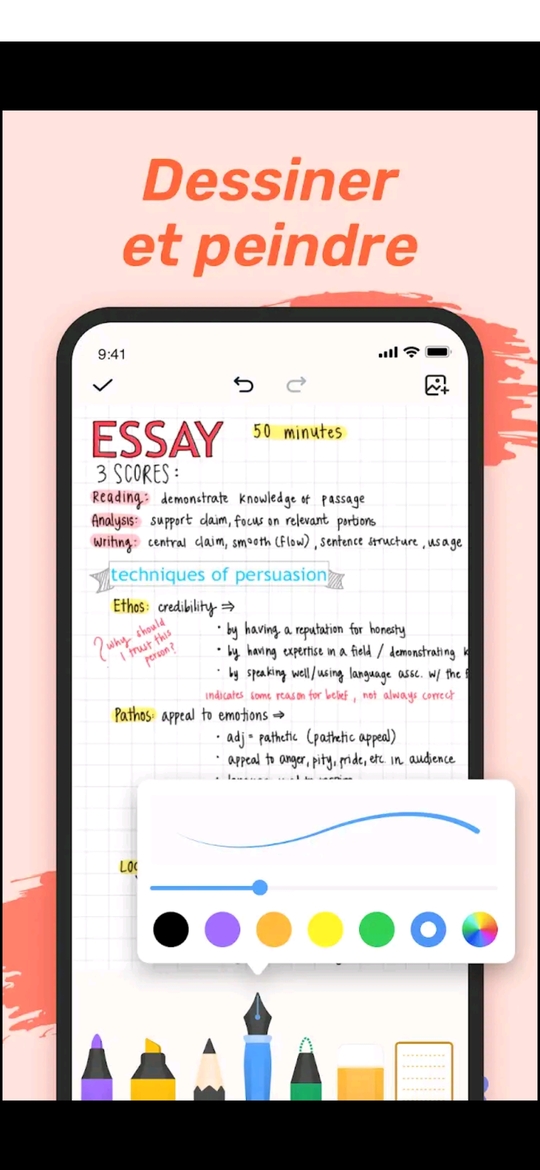 Dessiner
et peindre
9:41
ESSAY 50 minutes
3 SCORES:
Reading: demonstrate knowledge of passage
Analysis: support claim, focus on relevant portions
Writing: central claim, smooth (flow), sentence structure, usage
techniques of persuasion
Ethos: credibility ⇒
? why should
I trust this
person?
• by having a reputation for honesty
• by having expertise in a field / demonstrating k
• by speaking well/using language assc. w/ the f
indicates some reason for belief, not always correct
Pathos: appeal to emotions ⇒
• adj = pathetic (pathetic appeal)
• appeal to anger, pity, pride, etc. in audience